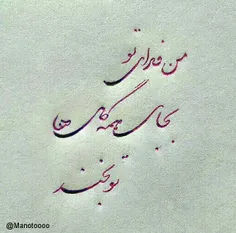 من فدای تو
بجای همه گل ها
تو بخند
@Manotoooo